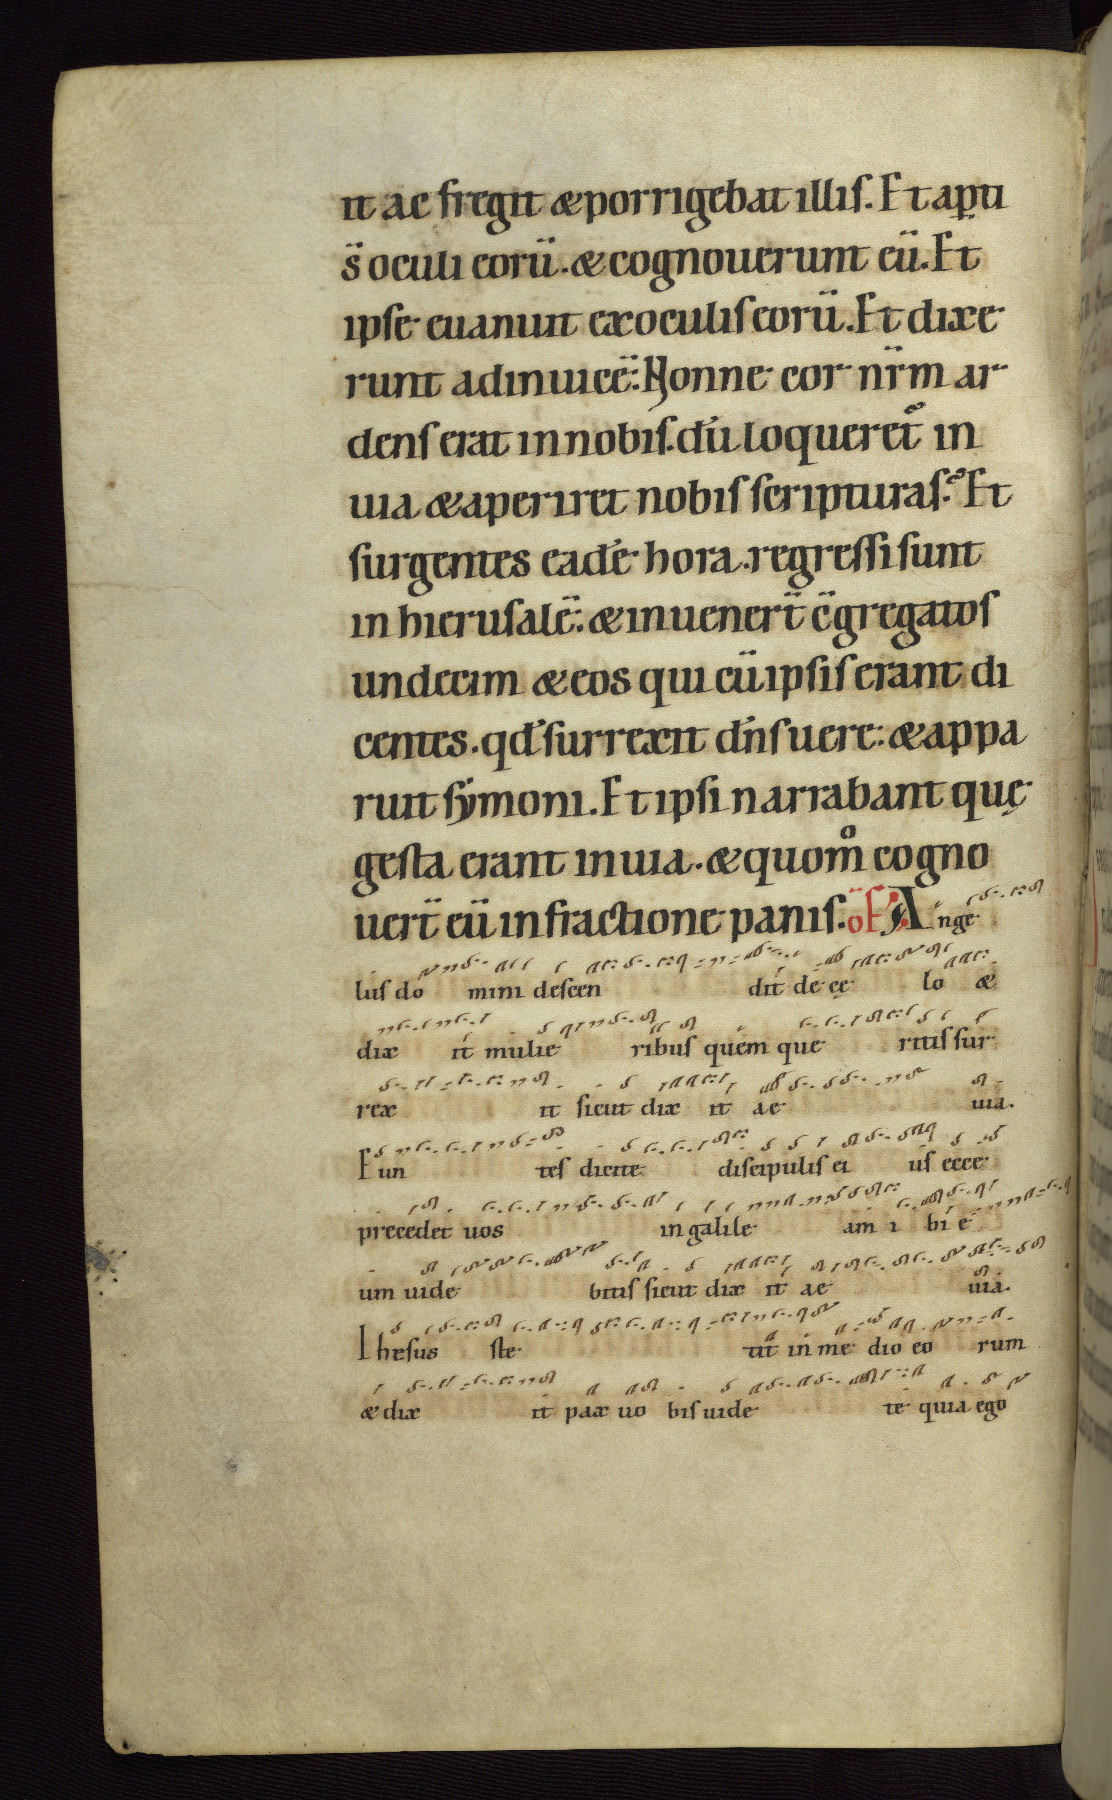 it ac fregit & porrigebat illis. Et ap̲ti
s̄ oculi eorū. & cognouerunt eū. Et
ipse euanuit ex oculis eorū. Et dixe
runt adinuicē: Nonne cor nr̄m ar
dens erat in nobis. dū loqueret᷑ in
uia & aperiret nobis scripturas. Et
surgentes eadē hora. regressi sunt
in hierusalē: & inuenert̄ c̄gregatos
undecim & eos qui cū ipsis erant di
centes. qd̄ surrexit dn̄s uere: & appa
ruit symoni. Et ipsi narrabant quę
gesta erant in uia. & quom̊ cogno
uert̄ eū in fractione panis. oF Ange
lus do mini descen dit de cę lo &
dix it mulie ribus quem que ritis sur
rex it sicut dix it ae uia.
Eun tes dicite discipulis ei us ecce
precedet uos in galile am i bi e
um uide bitis sicut dix it ae uia.
Ihesus ste tit in me dio eo rum
& dix it pax uo bis uide te quia ego